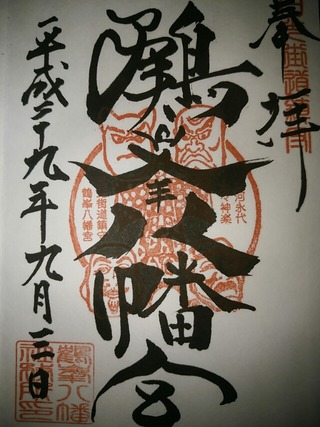 奉拝
鶴峯八幡宮
平成二十九年九月三日
街道鎮守
鶴峯八幡宮
河永代
々神楽
鶴峯八幡